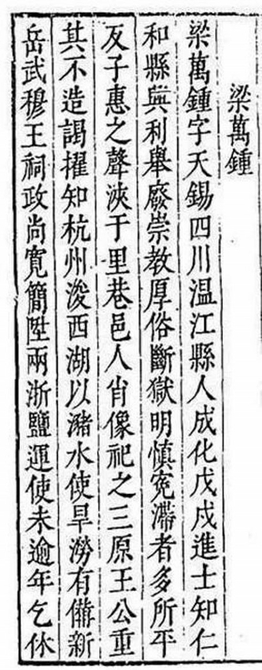 梁萬鍾
梁萬鍾字天錫四川温江縣人成化戊戌進士知仁
和縣興利舉廢崇教厚俗斷獄明慎寃滯者多所平
反子惠之聲浹于里巷邑人肖像祀之三原王公重
其不造謁擢知杭州浚西湖以瀦水使旱澇有備新
岳武穆王祠政尚寛簡陞兩浙鹽運使未逾年乞休